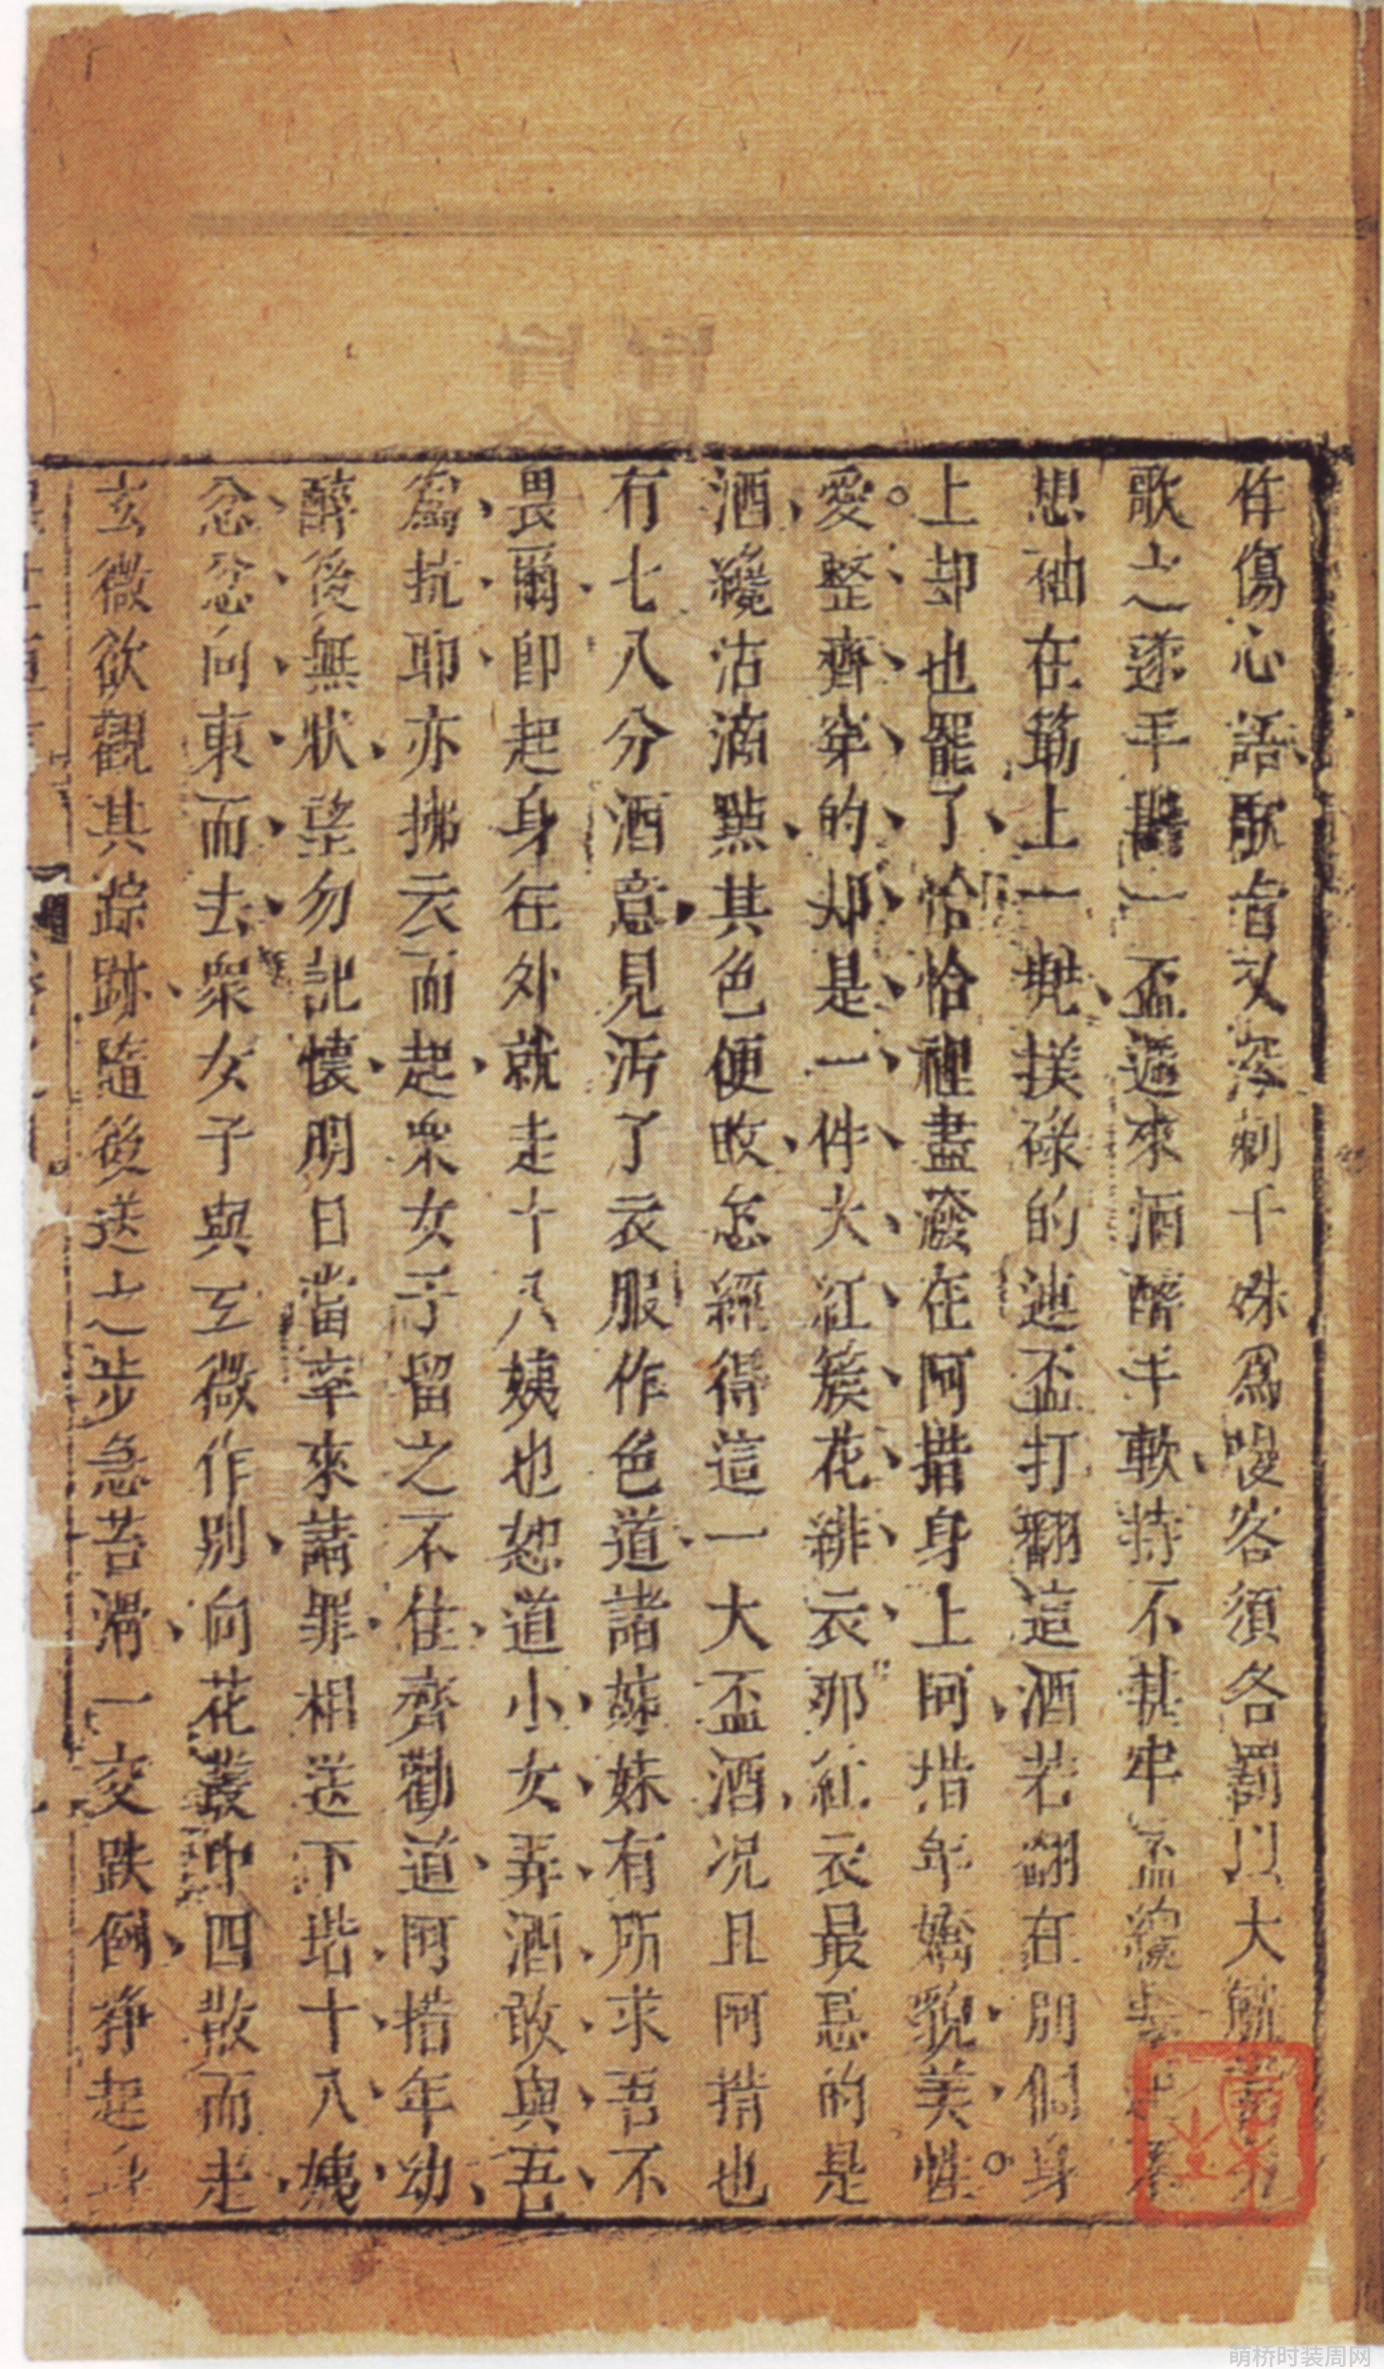 作傷心語歌旨又深刺于殊爲慢客須各罰以大觥當另
歌之遂手斟一盃遞來酒醉手軟持不甚牢盃纔
想袖在筯上一兜撲碌的連盃打翻這酒若翻在別個身
上却也罷了恰恰裡盡潑在阿措身上阿措年嬌貌美性
愛整齊穿的却是一件大紅簇花緋衣那紅衣最忌的是
酒纔沾滴點其色便敗怎經得這一大盃酒况且阿措也
有七八分酒意見汚了衣服作色道諸姊妹有所求吾不
畏爾即起身往外就走十八姨也怒道小女弄酒敢與吾
爲抗耶亦拂衣而起眾女子留之不住齊勸道阿措年幼
醉後無狀望勿記懷明日當率來請罪相送下堦十八姨
忿忿向東而去衆女子與玄微作別向花叢中四散而走
玄微欲觀其踪跡隨後送之步急苔滑一交跌倒掙起身
萌桥时装周网